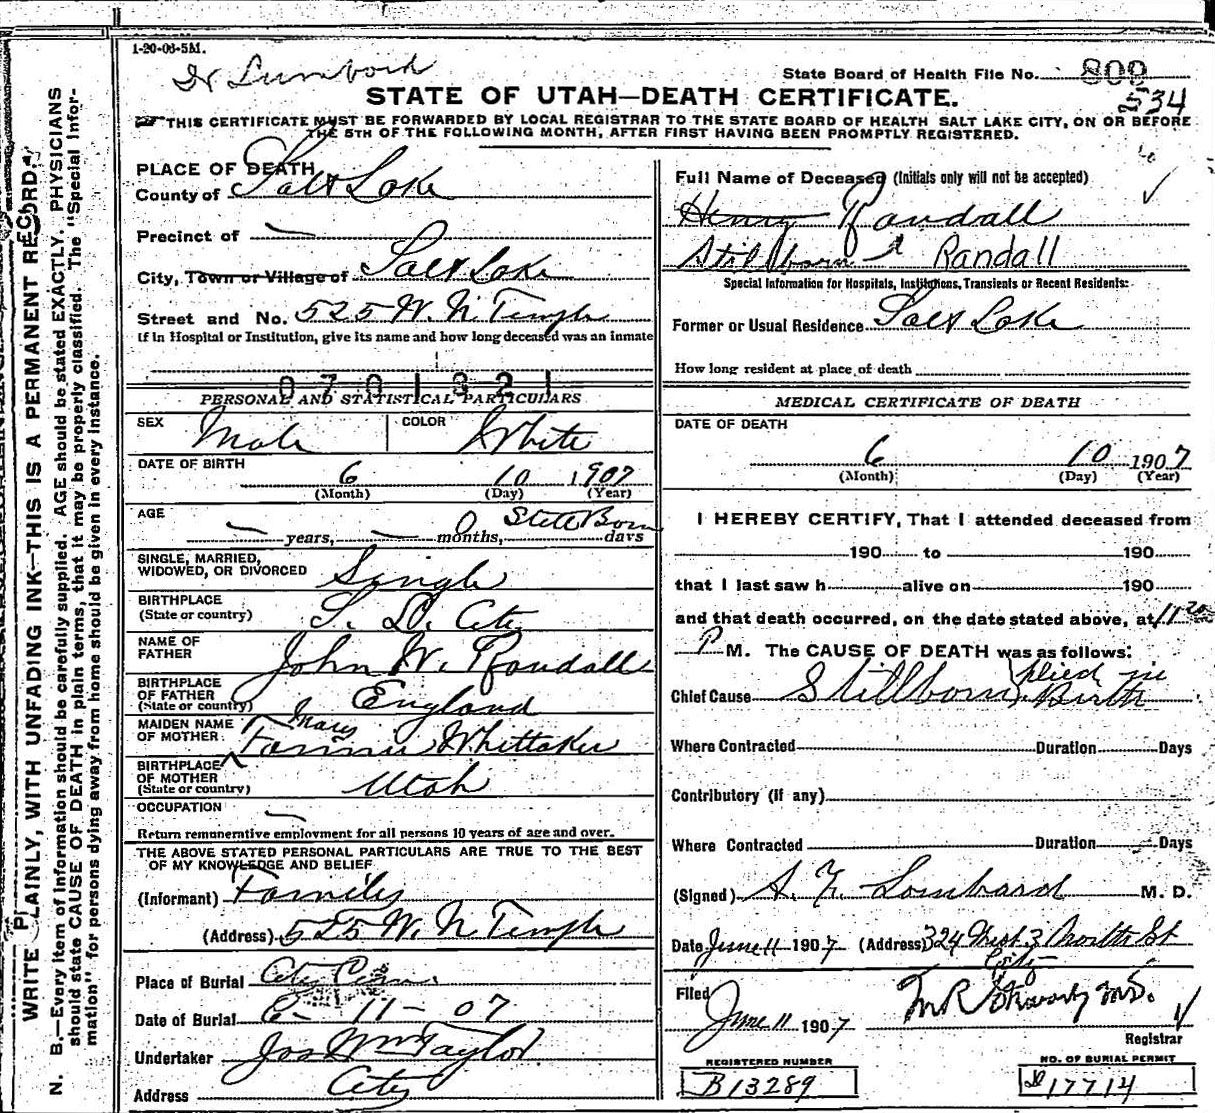 1-20-06-5M.
Dr Lumbord
State Board of Health File No. 809
534
STATE OF UTAH—DEATH CERTIFICATE.
THIS CERTIFICATE MUST BE FORWARDED BY LOCAL REGISTRAR TO THE STATE BOARD OF HEALTH SALT LAKE CITY, ON OR BEFORE
THE 5TH OF THE FOLLOWING MONTH, AFTER FIRST HAVING BEEN PROMPTLY REGISTERED.
PLACE OF DEATH
County of Salt Lake
Precinct of —
City, Town or Village of Salt Lake
Street and No. 525 W. N Temple
If in Hospital or Institution, give its name and how long deceased was an inmate
0701321
PERSONAL AND STATISTICAL PARTICULARS
SEX Male COLOR White
DATE OF BIRTH 6 10 1907
(Month) (Day) (Year)
AGE Still Born
— years, — months, days
SINGLE, MARRIED,
WIDOWED, OR DIVORCED Single
BIRTHPLACE
(State or country) S. L. City
NAME OF
FATHER John W. Randall
BIRTHPLACE
OF FATHER
(State or country) England
MAIDEN NAME Mary
OF MOTHER Fannie Whittaker
BIRTHPLACE
OF MOTHER
(State or country) Utah
OCCUPATION —
Return remunerative employment for all persons 10 years of age and over.
THE ABOVE STATED PERSONAL PARTICULARS ARE TRUE TO THE BEST
OF MY KNOWLEDGE AND BELIEF
(Informant) Family
(Address) 525 W. N Temple
Place of Burial City Cem
Date of Burial 6-11-07
Undertaker Jos Wm Taylor
Address City
Full Name of Deceased (Initials only will not be accepted)
Henry Randall
Stillborn Randall
Special Information for Hospitals, Institutions, Transients or Recent Residents:
Former or Usual Residence Salt Lake
How long resident at place of death
MEDICAL CERTIFICATE OF DEATH
DATE OF DEATH
6 10 1907
(Month) (Day) (Year)
I HEREBY CERTIFY, That I attended deceased from
190 to 190
that I last saw h alive on 190
and that death occurred, on the date stated above, at 11 20
P M. The CAUSE OF DEATH was as follows:
Chief Cause Stillborn, Died in Birth
Where Contracted Duration Days
Contributory (if any)
Where Contracted Duration Days
(Signed) Lombard M. D.
Date June 11 1907 (Address) 324 West 3 North St
City
Filed
June 11 1907
Registrar
REGISTERED NUMBER
B13289
NO. OF BURIAL PERMIT
17714
WRITE PLAINLY, WITH UNFADING INK—THIS IS A PERMANENT RECORD.
N. B.—Every item of information should be carefully supplied. AGE should be stated EXACTLY. PHYSICIANS
should state CAUSE OF DEATH in plain terms, that it may be properly classified. The "Special Infor-
mation" for persons dying away from home should be given in every instance.